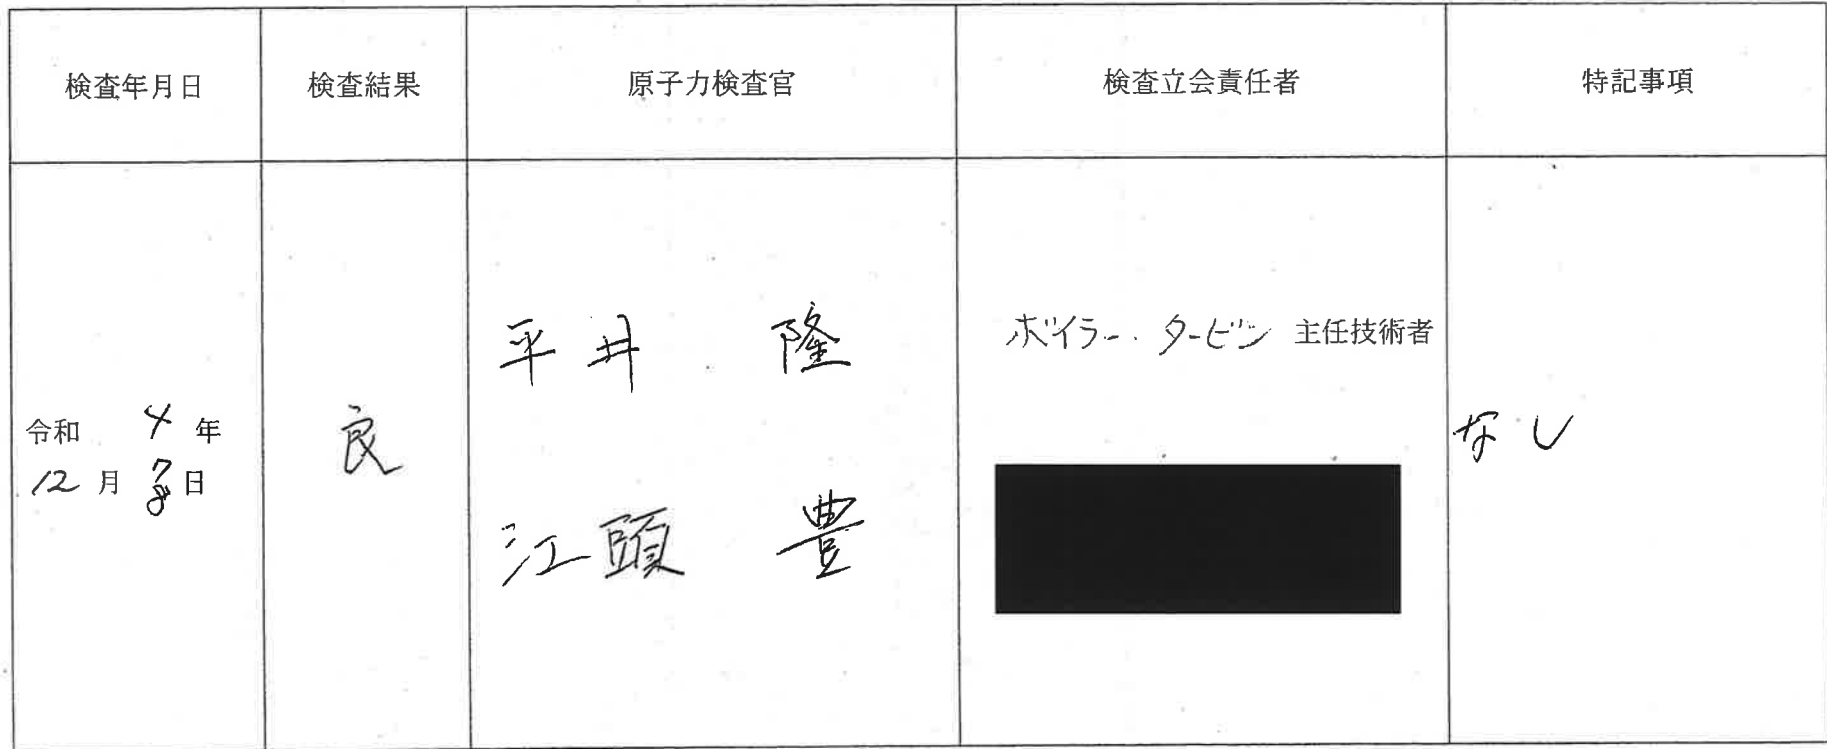 検査年月日
検査結果
原子力検査官
検査立会責任者
特記事項
令和 4 年
12 月 日
良
平井 隆
江頭 豊
ボイラー・タービン 主任技術者
なし